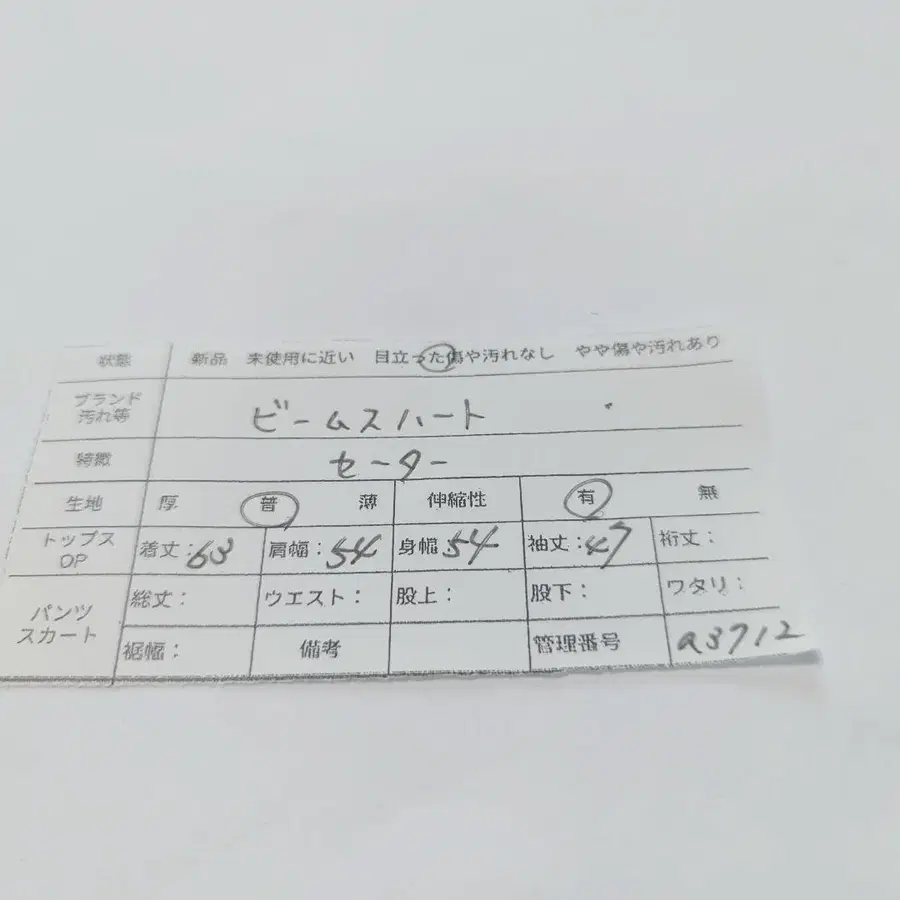 状態 新品 未使用に近い 目立った傷や汚れなし やや傷や汚れあり
ブランド
汚れ等 ビームスハート
特徴 セーター
生地 厚 普 薄 伸縮性 有 無
トップス
OP 着丈:63 肩幅:54 身幅54 袖丈:47 裄丈:
パンツ
スカート 総丈: ウエスト: 股上: 股下: ワタリ:
裾幅: 備考 管理番号 a3712